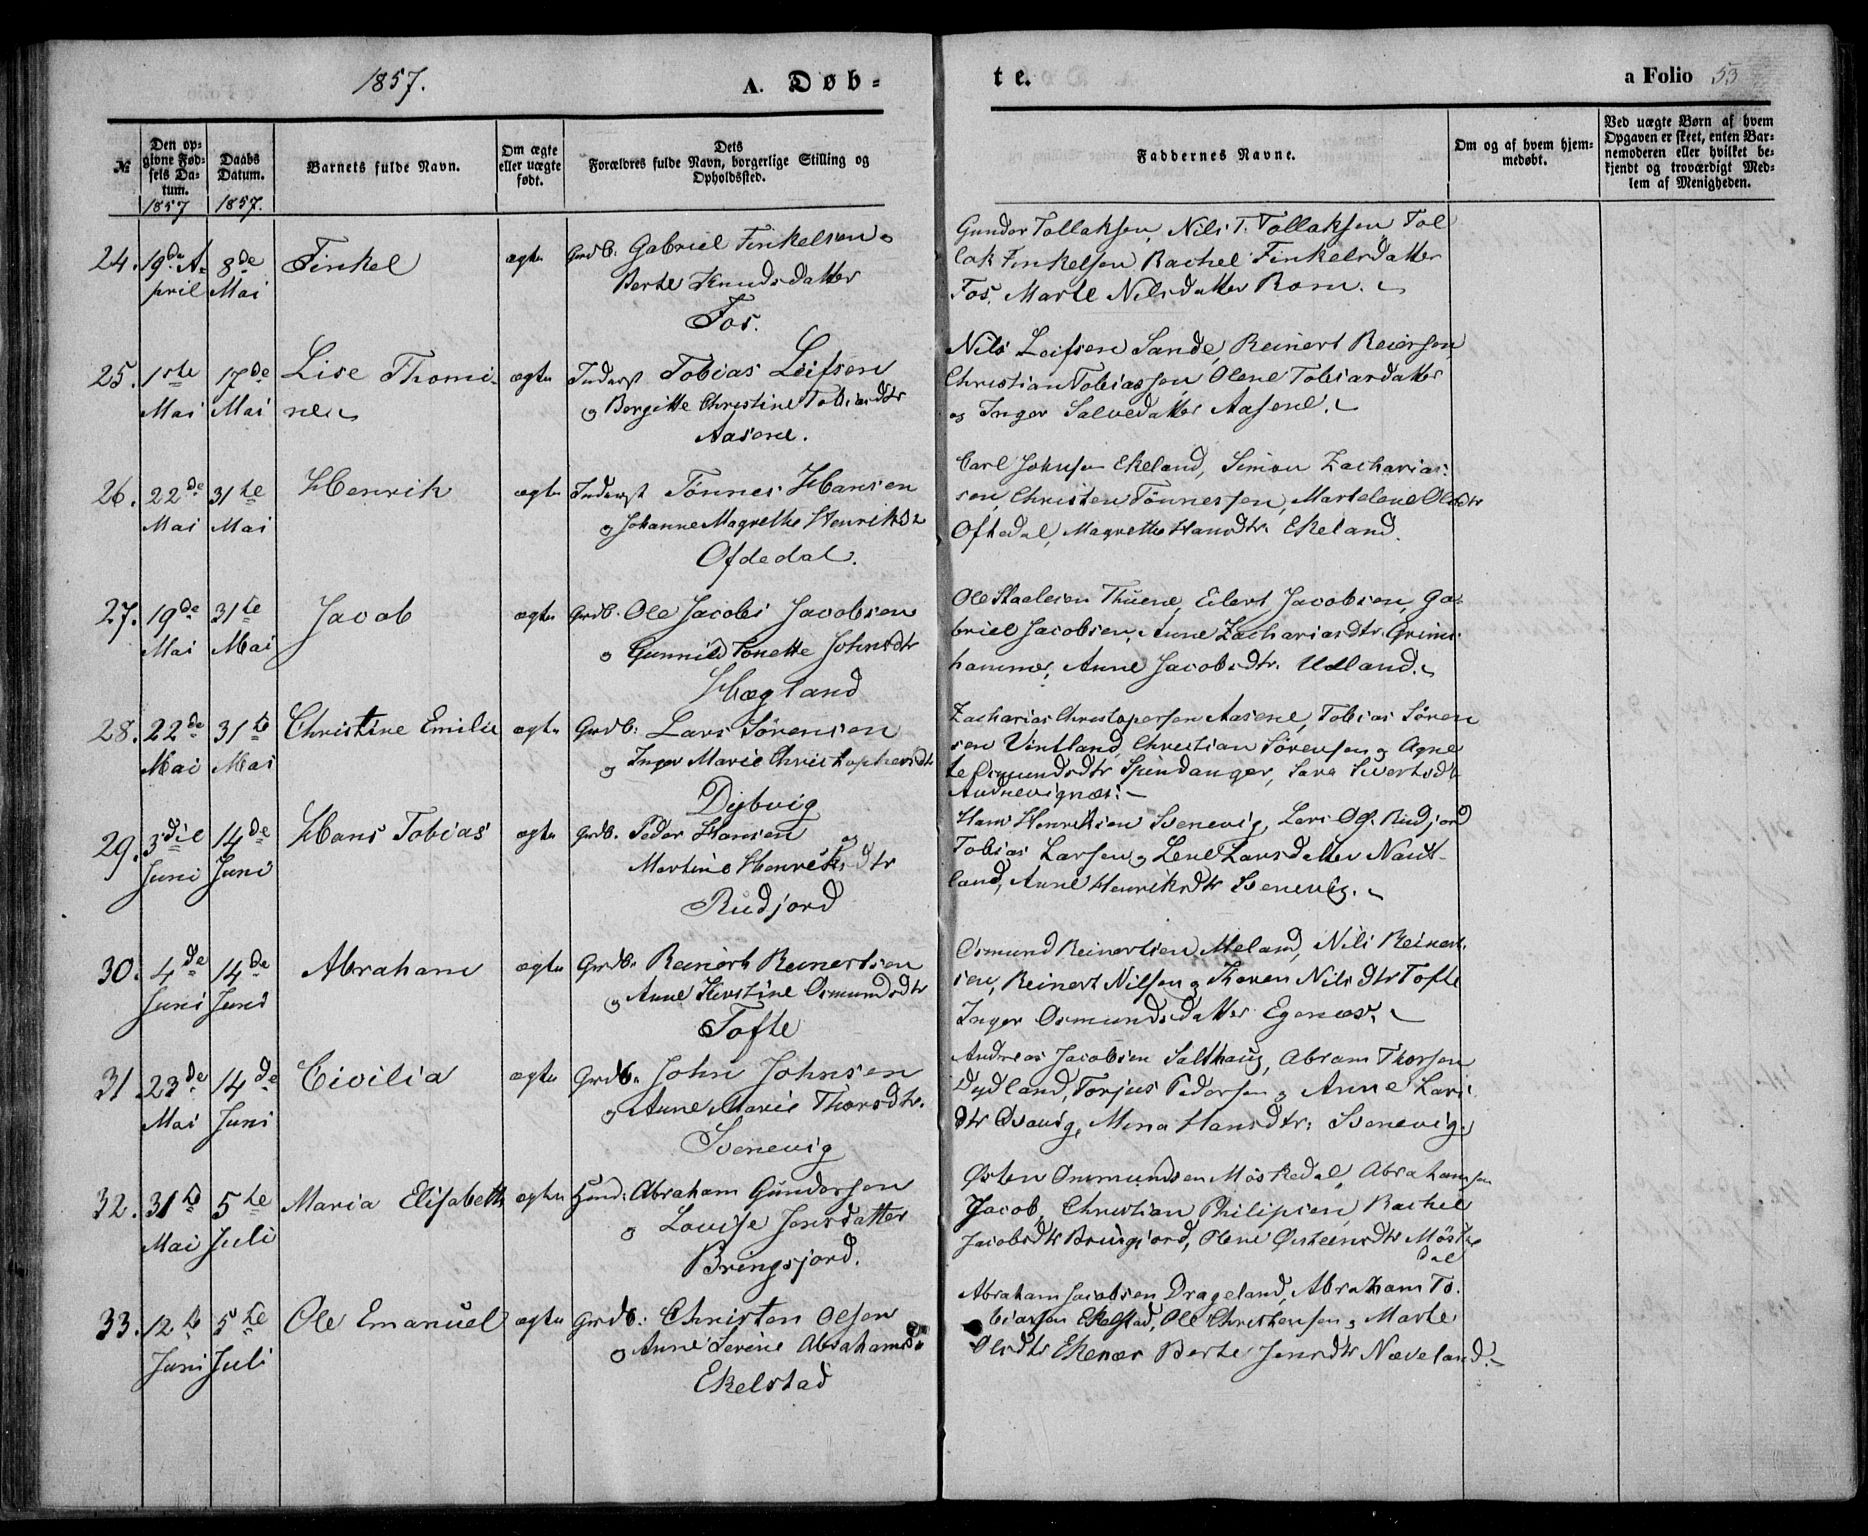 1857.
A. Døb-
te.
a Folio 53
№
Den op-
givne Fød-
sels Da-
tum.
1857
Daabs
Datum.
1857.
Barnets fulde Navn.
Om ægte
eller uægte
født.
Dets
Forældres fulde Navn, borgerlige Stilling og
Opholdssted.
Faddernes Navne.
Om og af hvem hjem-
medøbt.
Ved uægte Børn af hvem
Opgaven er skeet, enten Bar-
nemoderen eller hvilket be-
kjendt og troværdigt Med-
lem af Menigheden.
24. 19de A-
pril
8de
Mai
Tinkel
ægte
Grdb. Gabriel Tinkelsen o
Berte Knudsdatter
Fos.
Gunder Tollaksen, Nils T. Tollaksen, Tol
lak Tinkelsen Rachel Tinkelsdatter
Fos, Marte Nilsdatter Rom.
25. 1ste
Mai
17de
Mai
Lise Thomi-
ne
ægte
Inderst Tobias Leifsen
o Bergitte Christine Tobiasdtr
Aasene.
Nils Leifsen Sande, Reinert Reiersen
Christian Tobiassen, Olene Tobiasdatter
og Inger Salvedatter Aasene.
26. 22de
Mai
31te
Mai
Henrik
ægte
Inderst Tønnes Hansen
o Johanne Magrethe Henriksdr
Ofdedal.
Carl Johnsen Ekeland, Simon Zacharias-
sen, Christen Tønnessen, Martelene Olsdtr
Ofdedal, Magrethe Hansdtr. Ekeland.
27. 19de
Mai
31te
Mai
Jacob
ægte
Grdb. Ole Jacobs Jacobsen
o Gunnild Tonette Johnsdtr
Hægland
Ole Staalesen Thuene, Eilert Jacobsen, Ga-
briel Jacobsen, Anne Zachariasdtr. Grims-
hammer, Anne Jacobsdtr. Udland.
28. 22de
Mai
31te
Mai
Christine Emilie
ægte
Grdb: Lars Sørensen
o Inger Marie Christophersdtr
Dybvig
Zacharias Christopersen Aasene, Tobias Søren
sen Vintland, Christian Sørensen o Agne
te Osmundsdtr Spindanger, Sara Sivertsdtr
Audnevignæs.
29. 3die
Juni
14de
Juni
Hans Tobias
ægte
Grdb. Peder Hansen og
Martine Henriksdtr
Rudjord
Hans Henriksen Svenevig, Lars Ols. Rudjord
Tobias Larsen o Lene Larsdatter Naut-
land, Anne Henriksdtr Svenevig.
30. 4de
Juni
14de
Juni
Abraham
ægte
Grdb. Reinert Reinertsen
o Anne Kirstine Osmundsdtr
Tofte
Osmund Reinertsen Meland, Nils Reinert-
sen, Reinert Nilsen o Karen Nilsdtr Tofte
Inger Osmundsdatter Egenæs.
31 23de
Mai
14de
Juni
Civilia
ægte
Grdb. John Johnsen
o Anne Marie Thorsdtr.
Svenevig
Andreas Jacobsen Salthaug, Abram Thorsen
Dydland, Torjus Pedersen o Anne Lars-
dtr Qvavig, Mina Hansdtr: Svenevig.
32. 31te
Mai
5te
Juli
Maria Elisabeth
ægte
Huusd: Abraham Gundersen
o Lovise Jensdatter
Bringsjord.
Østen Ommundsen Møskedal, Abrahamsen
Jacob, Christian Philipsen, Rachel
Jacobsdtr Bringsjord, Olene Østensdtr Møske
dal
33. 12te
Juni
5te
Juli
Ole Emanuel
ægte
Grdb: Christen Olsen
o Anne Serine Abrahamsdr
Ekelstad
Abraham Jacobsen Drageland, Abraham To-
biassen Ekelstad, Ole Christensen o Marte
Olsdtr Ekenæs Berte Jensdtr Næveland.